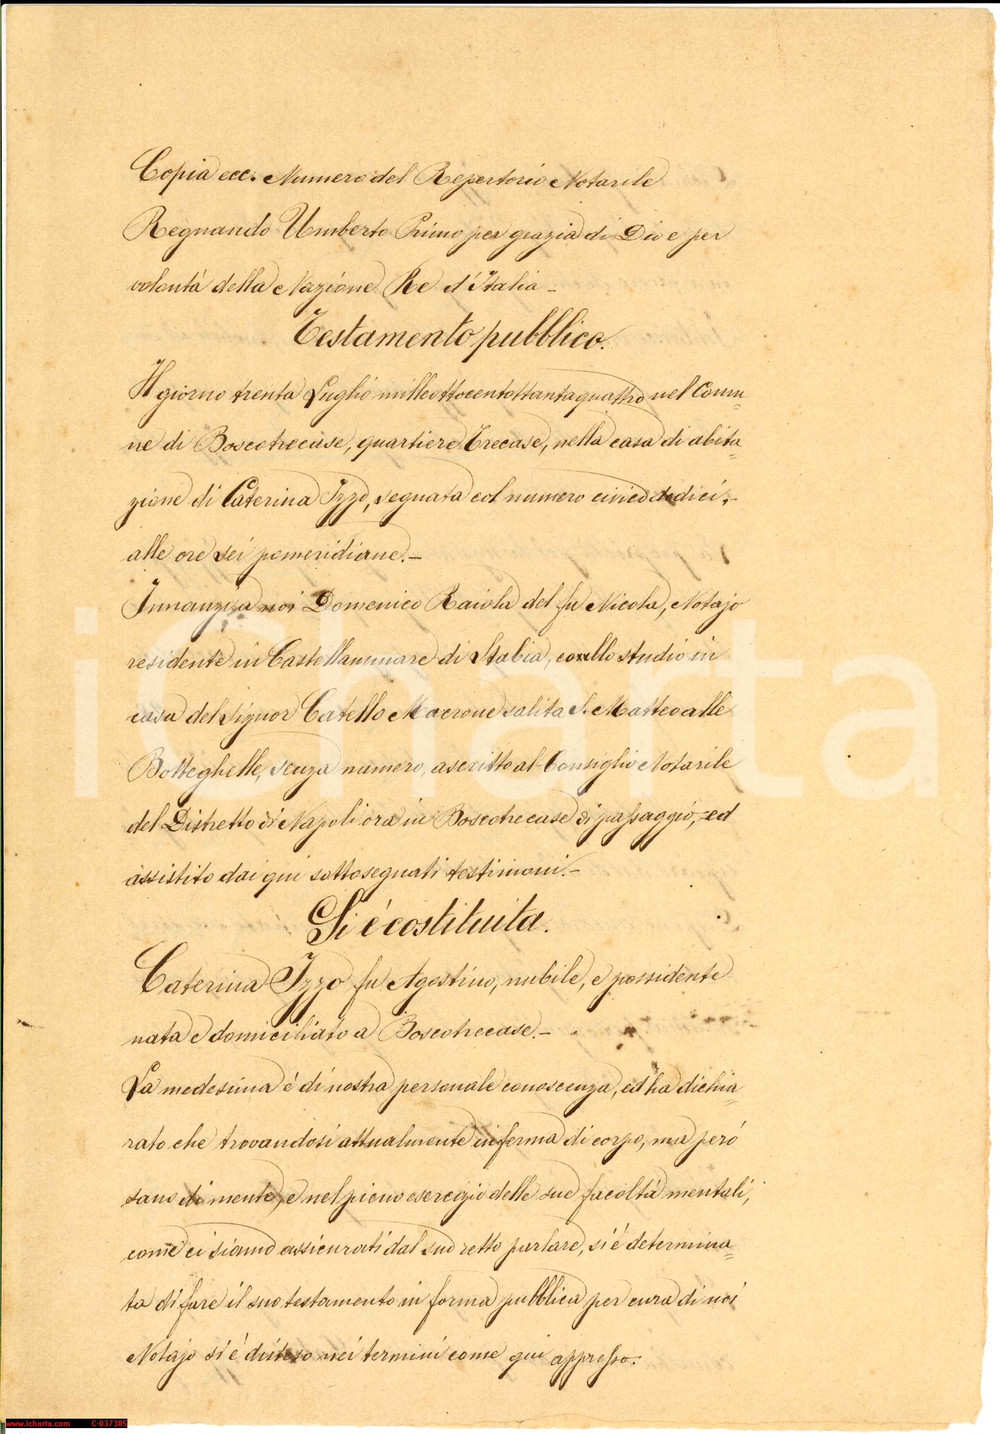 Copia ecc. Numero del Repertorio Notarile
Regnando Umberto Primo per grazia di Dio e per
volontà della Nazione Re d'Italia –
Testamento pubblico.
Il giorno trenta Luglio milleottocentottantaquattro nel Comu=
ne di Boscotrecase, quartiere Trecase, nella casa di abita=
zione di Caterina Izzo, segnata col numero civico dodici, –
alle ore sei pomeridiane. –
Innanzi a noi Domenico Raiola del fu Nicola, Notajo
residente in Castellammare di Stabia, collo studio in
casa del Signor Catello Macrone salita S. Matteo alle
Botteghelle, senza numero, ascritto al Consiglio Notarile
del Distretto di Napoli ora in Boscotrecase di passaggio, ed
assistito dai qui sottosegnati testimoni. –
Si è costituita.
Caterina Izzo fu Agostino, nubile, e possidente
nata e domiciliato a Boscotrecase. –
La medesima è di nostra personale conoscenza, ed ha dichia=
rato che trovandosi attualmente inferma di corpo, ma però
sano di mente, e nel pieno esercizio delle sue facoltà mentali,
come ci siamo assicurati dal suo retto parlare, si è determina=
ta di fare il suo testamento in forma pubblica per cura di noi
Notajo si è disteso nei termini come qui appresso.
iCharta
www.icharta.com C-037385